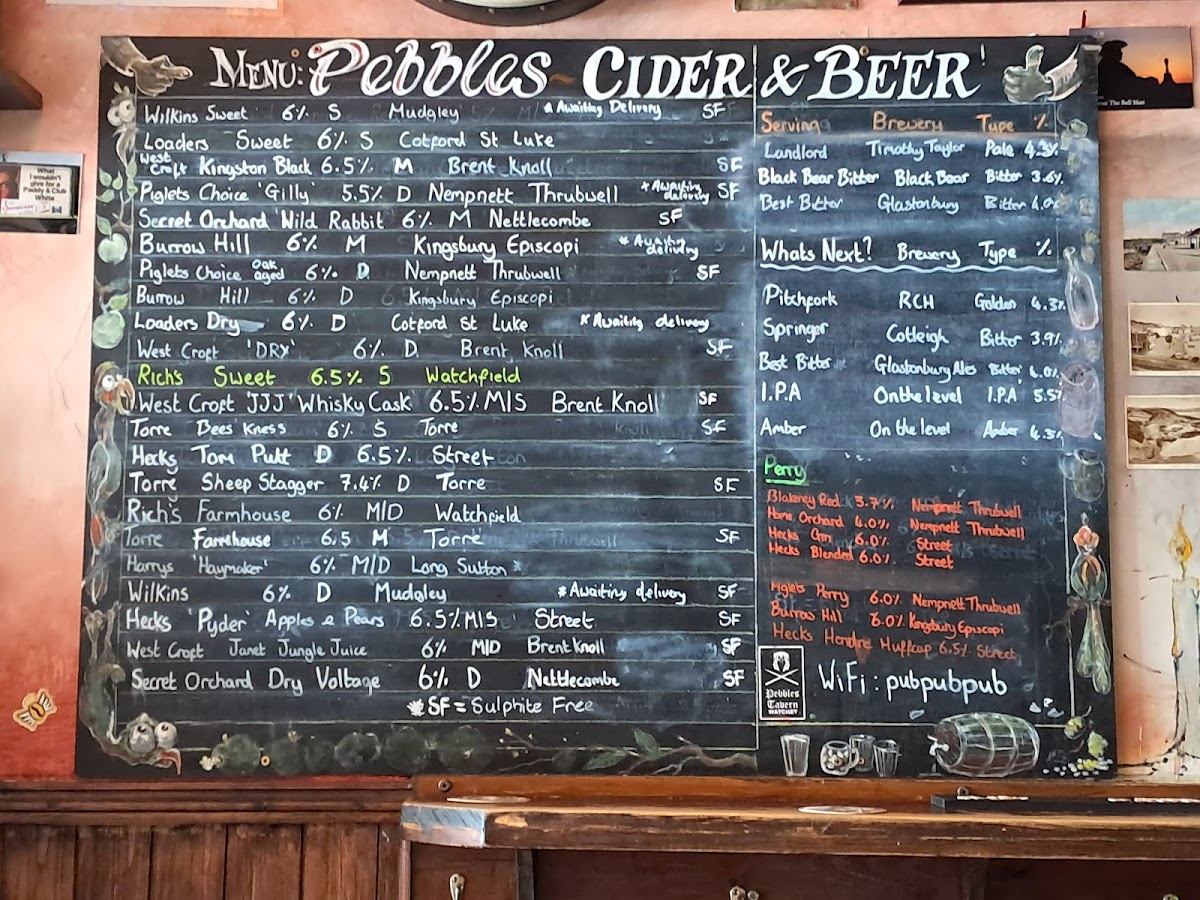 MENU: Pebbles ~ CIDER & BEER!
Wilkins Sweet 6% S Mudgley * Awaiting Delivery SF
Loaders Sweet 6% S Cotford St Luke
West Croft Kingston Black 6.5% M Brent Knoll SF
Piglets Choice 'Gilly' 5.5% D Nempnett Thrubwell * Awaiting delivery SF
Secret Orchard 'Wild Rabbit' 6% M Nettlecombe SF
Burrow Hill 6% M Kingsbury Episcopi * Awaiting delivery
Piglets Choice Oak aged 6% D Nempnett Thrubwell SF
Burrow Hill 6% D Kingsbury Episcopi
Loaders Dry 6% D Cotford St Luke * Awaiting delivery
West Croft 'DRY' 6% D Brent Knoll SF
Rich's Sweet 6.5% S Watchfield
West Croft 'JJJ' Whisky Cask 6.5% M/S Brent Knoll SF
Torre Bees Kness 6% S Torre SF
Hecks Tom Putt D 6.5% Street
Torre Sheep Stagger 7.4% D Torre SF
Rich's Farmhouse 6% M/D Watchfield
Torre Farmhouse 6.5 M Torre SF
Harrys 'Haymaker' 6% M/D Long Sutton
Wilkins 6% D Mudgley * Awaiting delivery SF
Hecks 'Pyder' Apples & Pears 6.5% M/S Street SF
West Croft Janet Jungle Juice 6% M/D Brent Knoll SF
Secret Orchard Dry Voltage 6% D Nettlecombe SF
* SF = Sulphite Free
Serving Brewery Type %
Landlord Timothy Taylor Pale 4.3%
Black Bear Bitter Black Bear Bitter 3.6%
Best Bitter Glastonbury Bitter 4.0%
Whats Next? Brewery Type %
Pitchfork RCH Golden 4.3%
Springer Cotleigh Bitter 3.9%
Best Bitter Glastonbury Ales Bitter 4.0%
I.P.A On the level I.P.A 5.5%
Amber On the level Amber 4.3%
Perry
Blakeney Red 3.7% Nempnett Thrubwell
Home Orchard 4.0% Nempnett Thrubwell
Hecks 6.0% Street
Hecks Blended 6.0% Street
Piglets Perry 6.0% Nempnett Thrubwell
Burrow Hill 6.0% Kingsbury Episcopi
Hecks Hendre Huffcap 6.5% Street
Pebbles
Tavern
WATCHET
WiFi: pubpubpub
What
I wouldn't
give for a
Paddy & Club
White